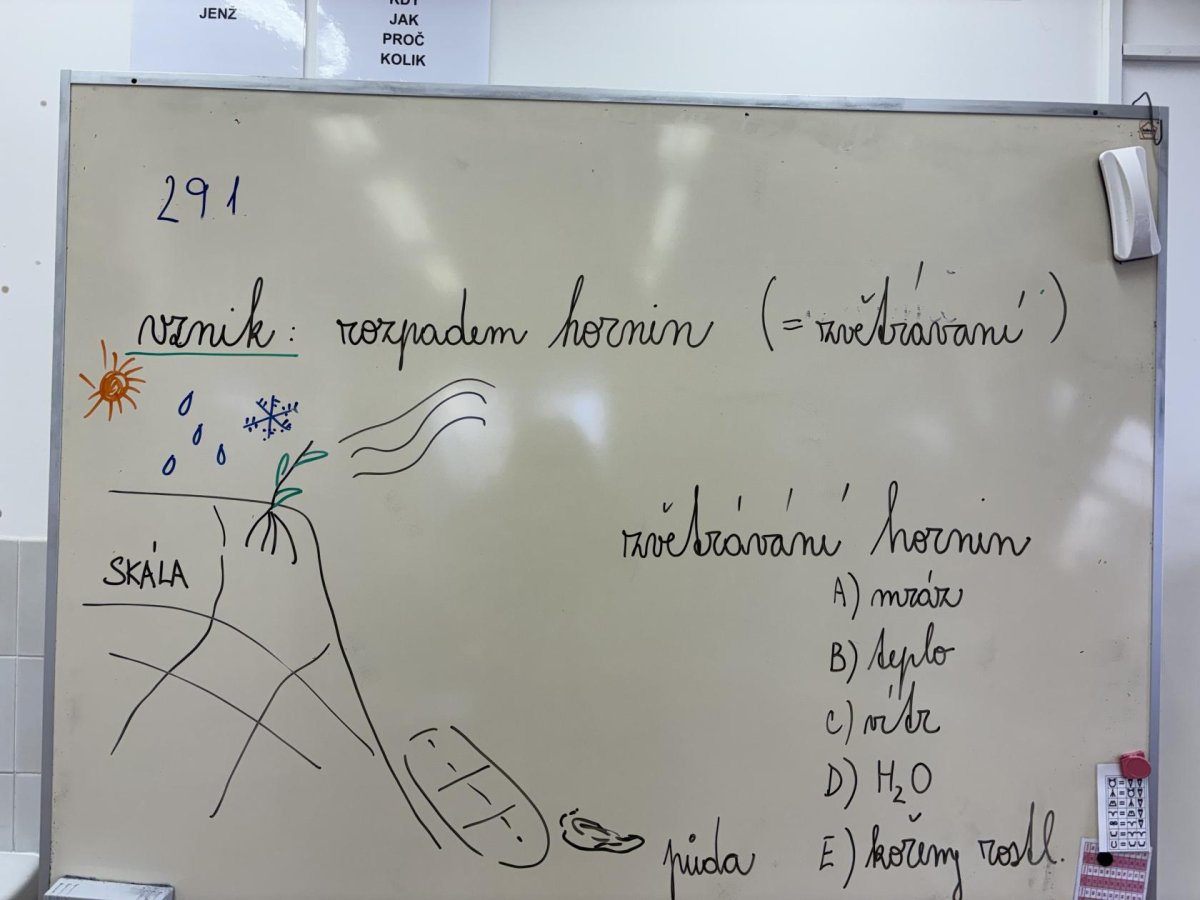 JENŽ
KDY
JAK
PROČ
KOLIK
291
vznik: rozpadem hornin (= zvětrávání)
SKÁLA
zvětrávání hornin
A) mráz
B) teplo
C) vítr
D) H₂O
E) kořeny rostl.
půda